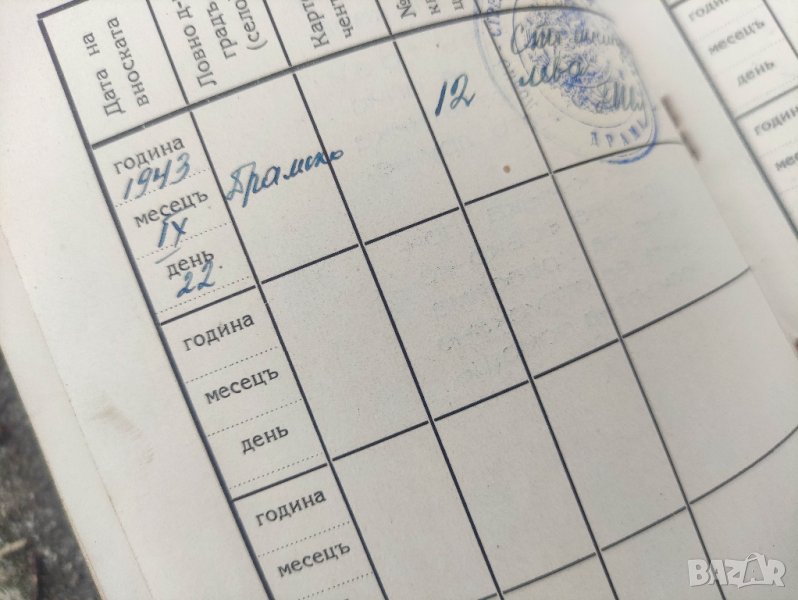 Дата на
вноската
Ловно д-
градъ
(село
Карт
чент
№
к
щ
година
1943
месецъ
IX
день
22.
Драмско
12
лева
ДРАМА
година
месецъ
день
година
месецъ
година
месецъ
день
година
месецъ
BAZAR